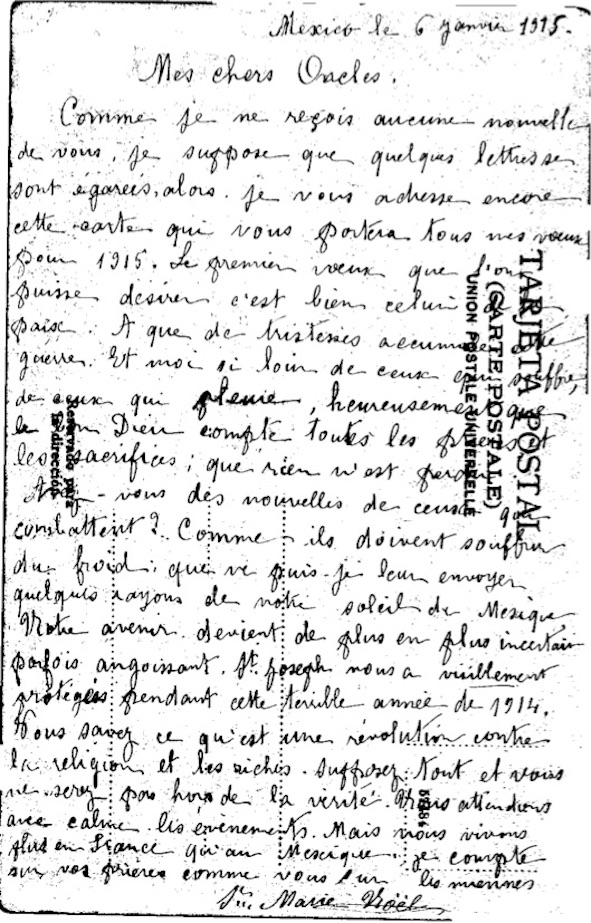 Mexico le 6 Janvier 1915.
Mes chers Oncles.
Comme je ne reçois aucune nouvelle
de vous, je suppose que quelques lettres se
sont égarées, alors je vous adresse encore
cette carte qui vous portera tous mes vœux
pour 1915. Le premier vœux que l'on
puisse désirer c'est bien celui de
paix. A que de tristesses accumule cette
guerre. Et moi si loin de ceux qui souffre,
de ceux qui pleure, heureusement que
le bon Dieu compte toutes les prières et
les sacrifices; que rien n'est perdu
Avez-vous des nouvelles de ceux qui
combattent? Comme ils doivent souffrir
du froid, que ne puis-je leur envoyer
quelques rayons de notre soleil du Mexique
Notre avenir devient de plus en plus incertain
parfois angoissant. St. Joseph nous a visiblement
protégées pendant cette terrible année de 1914.
Vous savez ce qu'est une révolution contre
la religion et les riches. Supposez tout et vous
ne serez pas hors de la vérité. Nous attendons
avec calme les évènements. Mais nous vivons
plus en France qu'au Mexique. je compte
sur vos prières comme vous sur les miennes
Sr. Marie Noël
TARJETA POSTAL
(CARTE POSTALE)
UNION POSTALE UNIVERSELLE
Reservado para
la dirección